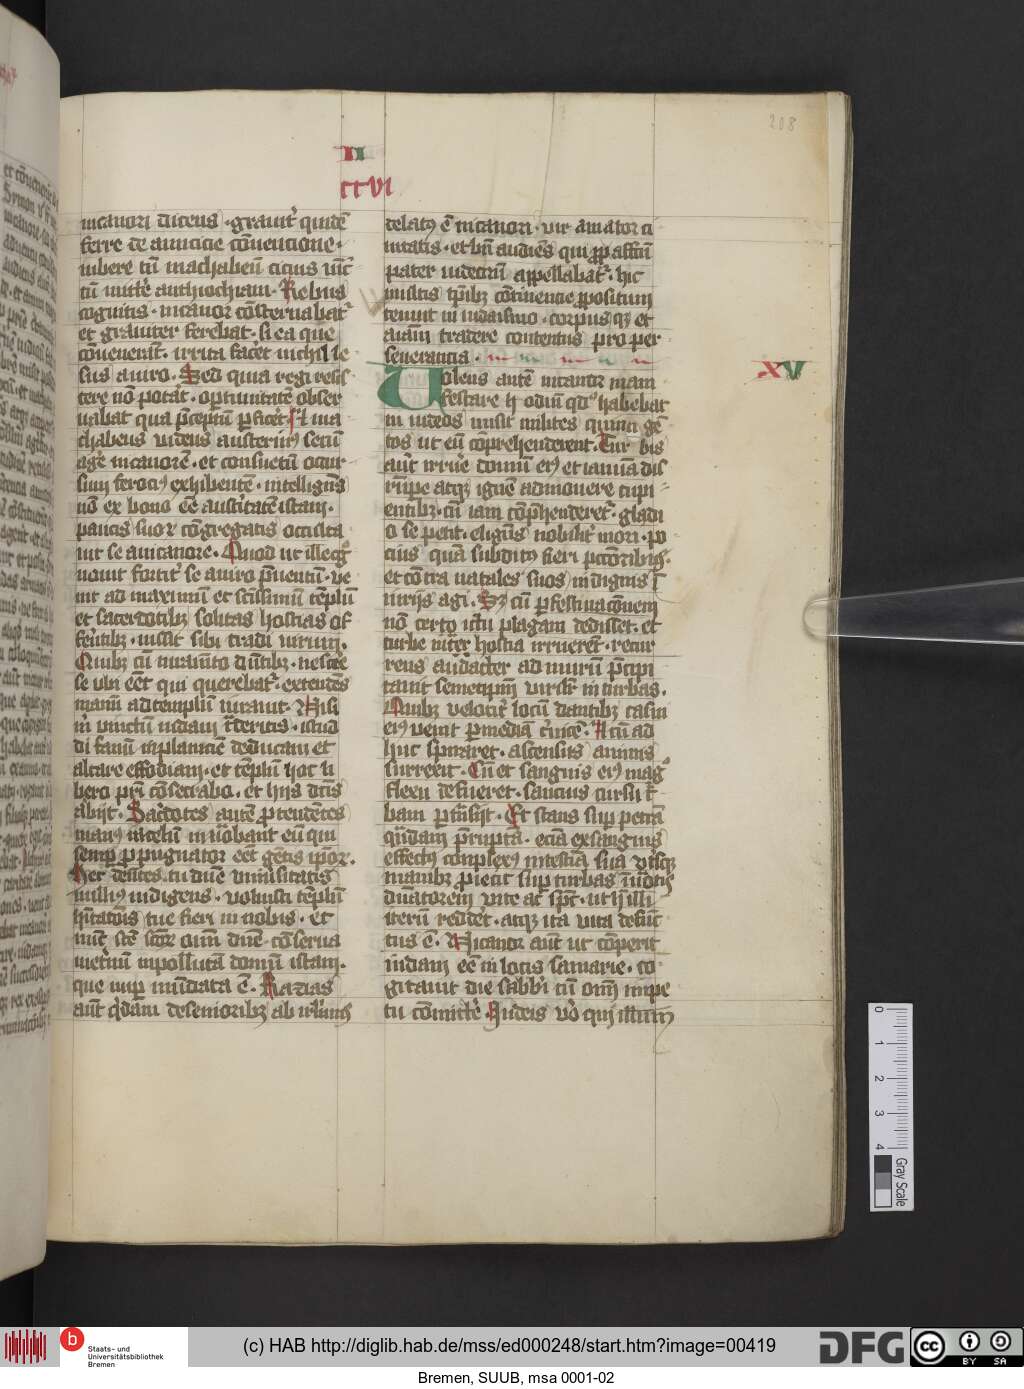 208
II
CCVI
nicanori dicens · grauit' quidē
ferre de amicicie cōuencione ·
iubere tn̄ machabeū cicius vīc
tū mitt'e anthiochiam · Rebus
cognitis · nicanor cōsternabat'
et grauiter ferebat · si ea que
cōuenerāt · irrita facēt nichil le
sus a uiro · Sed quia regi resis
tere nō potāt · oportunitatē obser
uabat qua p̄ceptū p̄ficēt · At ma
chabeus videns austeri9 secū
agē nicanorē · et consuetū occur
sum feroci9 exhibentē · intelligēs
nō ex bono eē austitatē istam ·
paucis suor̄ cōgregatis occulta
uit se a nicanore · Quod ut ille coḡ
nouit fortit' se a uiro p̄uentū · ve
nit ad maximū et sc̄issimū tēplū
et sacerdotibz solitas hostias of
ferētibz · iussit sibi tradi virum ·
Quibz cū iuramēto dicētibz · nescire
se ubi eēt qui querebat' · extendēs
manū ad templū iurauit · Nisi
m̄ vinctū iudam tradideritis · istud
di fanū in planiciē deducam et
altare effodiam · et tēplū hoc li
bero pr̄i cōsecrabo · et hiis dc̄is
abijt · Sac̄dotes autē p̄tendētes
man9 in celū inuocabant eū qui
semp̄ p̄pugnator eēt gētis ipor̄ ·
Hec dicētes · tu dn̄e uniuersitatis
nulli9 indigens · voluisti tēplū
hitatōis tue fieri in nobis · et
nūc sc̄e sc̄or̄ oīm dn̄e · cōserua
in et'nū inpollutā domū istam ·
que nup̄ mūdata ē · Razias
aut̄ q̄dam de senioribz ab irl'imis
delat9 ē nicanori · vir amator ci
uitatis · et bn̄ audiēs qui p̄p affc̄tū
pater iudeorū appellabat' · hic
multis tp̄ibz cōtinencie p̄positum
tenuit in iudaismo · corpus qz et
aīam tradere contentus pro per
seuerancia ·
XV
Uolens autē nicanor mani
festare h odiū qd' habebat
in iudeos misit milites quingē
tos ut eū cōprehenderent · Tur bis
aut̄ irrue domū ei9 et ianuā dis
rūpe atqz ignē admouere cupi
entibz · cū iam cōp̄henderet' · gladi
o se petit · eligēs nobilit' mori · po
cius quā subdit9 fieri pctōribus ·
et cōtra natales suos indignis ī
iurijs agi · Sz cū p festinacōnem
nō certo ictu plagam dedisset · et
turbe int̄ hostia irruerēt · recur
rens audacter ad murū p̄cipi
tauit semetipm̄ virilit' in turbas ·
Quibz velocit' locū dantibz casui
ei9 venit p mediā c'uicē · Et cū ad
huc spiraret · accensus animis
surrexit · Cū et sanguis ei9 mag̊
fluxu deflueret · saucius cursu t̄
bam p̄trāsijt · Et stans sup̄ petrā
quādam p̄ruptā · eciā exsanguis
effect9 complex9 intestīa sua ut̄sqz
manibz p̄iecit sup̄ turbas īuocās
dn̄atorem vite ac sp̄c · ut h̄ illi
iterū reddēt · atqz ita vita defūc
tus ē · Nicanor aut̄ ut cōperit
iudam eē in locis samarie · co
gitauit die sabb'i cū om̄i impe
tu cōmitt'e · Judeis vō qui illum
0 1 2 3 4
Gray Scale
b
Staats- und
Universitätsbibliothek
Bremen
(c) HAB http://diglib.hab.de/mss/ed000248/start.htm?image=00419
DFG
cc
BY SA
Bremen, SUUB, msa 0001-02